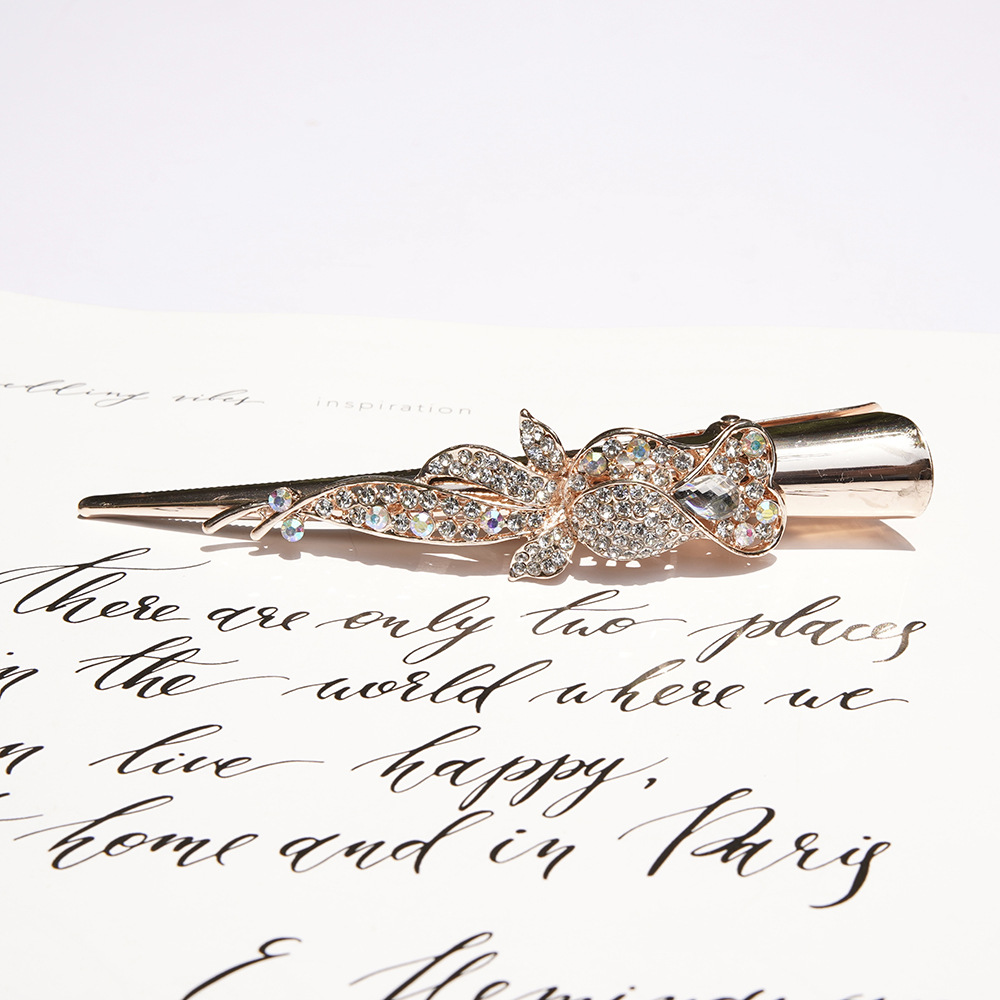 wedding vibes inspiration
There are only two places
in the world where we
live happy,
home and in Paris
E. Hemingway